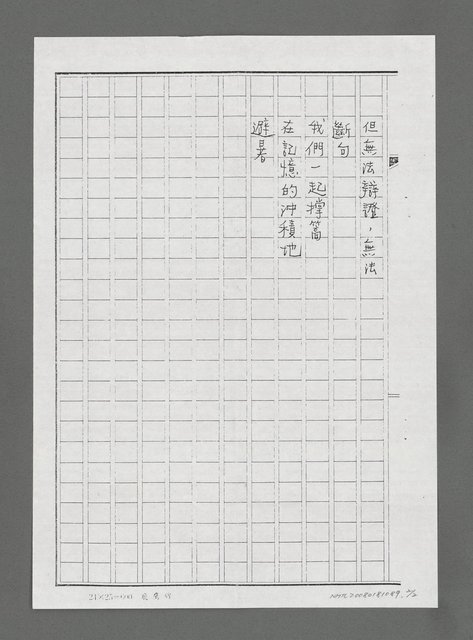 但無法辯證，無法
斷句
我們一起撐篙
在記憶的沖積地
避暑
NMTL20080181089, 2/2